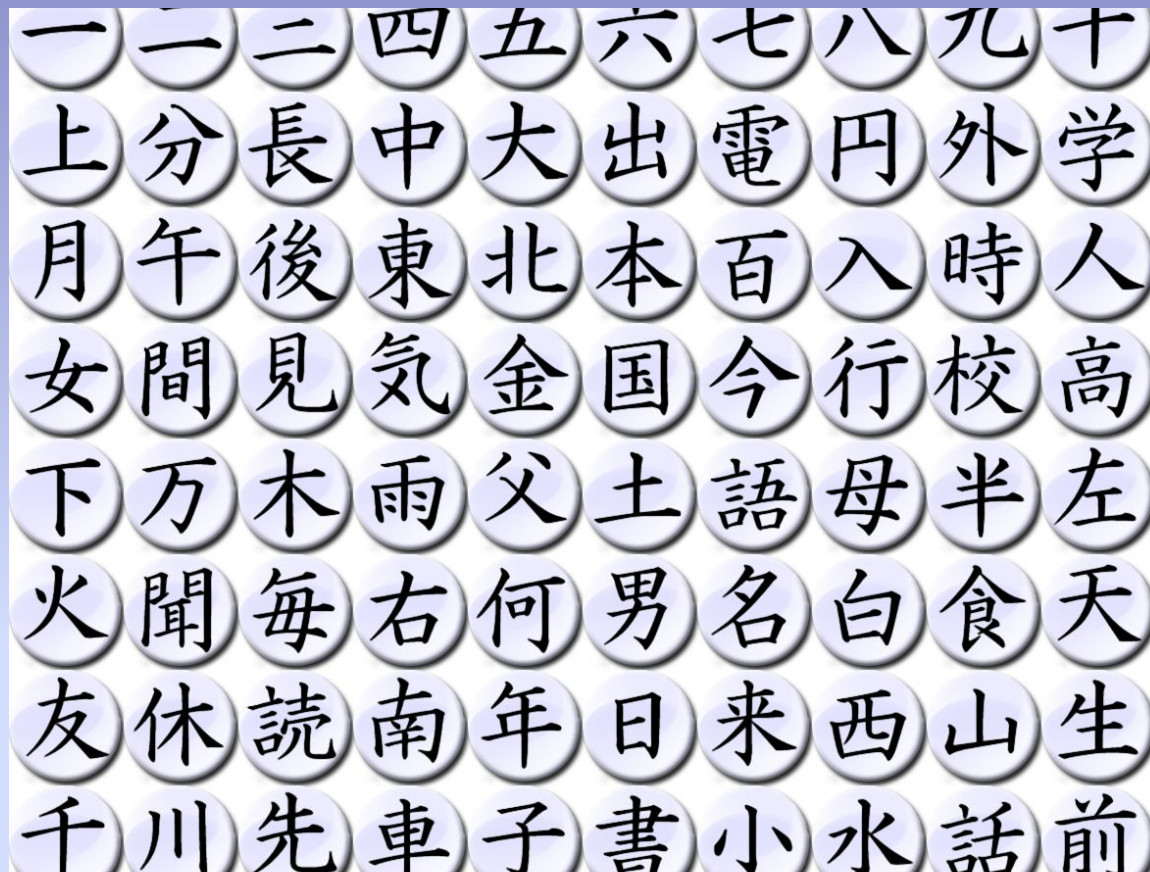 一二三四五六七八九十
上分長中大出電円外学
月午後東北本百入時人
女間見気金国今行校高
下万木雨父土語母半左
火聞毎右何男名白食天
友休読南年日来西山生
千川先車子書小水話前